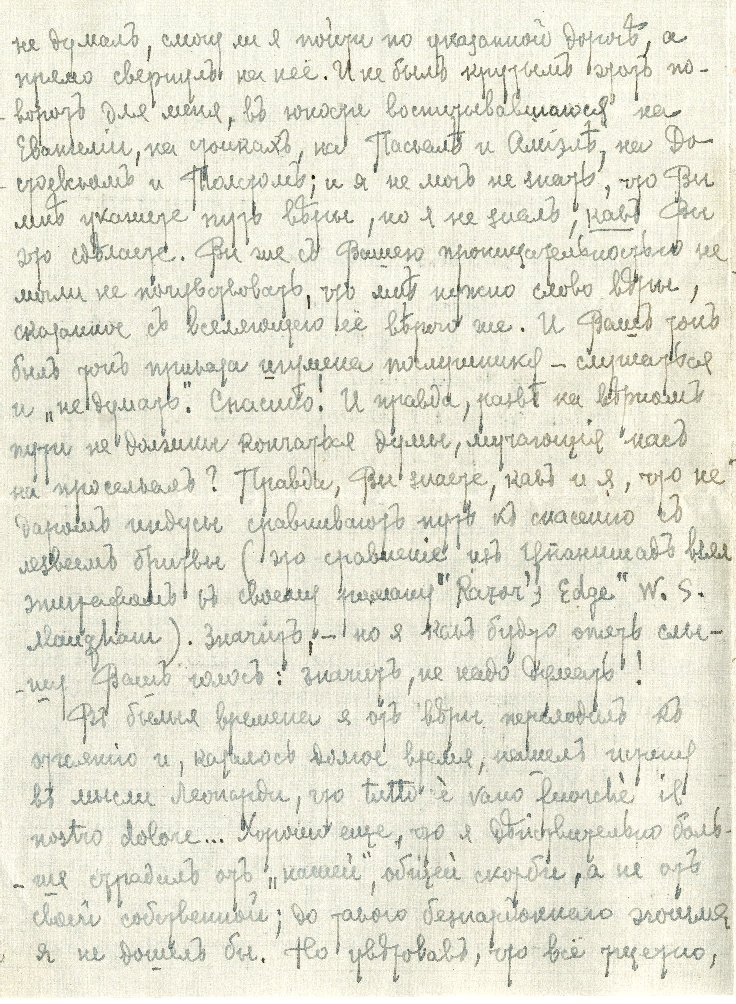 не думалъ, смогу ли я пойти по указанной дорогѣ, а
прямо свернулъ на неё. И не былъ крутымъ этотъ по-
воротъ для меня, въ юности воспитывавшагося на
Евангеліи, на стоикахъ, на Паскалѣ и Аміэлѣ, на До-
стоевскомъ и Толстомъ; и я не могъ не знать, что Вы
мнѣ укажете путь вѣры, но я не зналъ, какъ Вы
это сдѣлаете. Вы же съ Вашею проницательностью не
могли не почувствовать, что мнѣ нужно слово вѣры,
сказанное съ вселяющею её вѣрой же. И Вашъ тонъ
былъ тонъ приказа игумена послушнику – слушаться
и „не думать". Спасибо! И правда, развѣ на вѣрномъ
пути не должны кончаться думы, мучающія насъ
на проселкахъ? Правда, Вы знаете, какъ и я, что не
даромъ индусы сравниваютъ путь къ спасенію съ
лезвеемъ бритвы (это сравненіе изъ Упанишадъ взялъ
эпиграфомъ къ своему роману "Razor's Edge" W. S.
Maugham). Значитъ, – но я какъ будто опять слы-
шу Вашъ голосъ: значитъ, не надо думать!
Въ былыя времена я отъ вѣры переходилъ къ
отчаянію и, казалось долгое время, нашелъ истину
въ мысли Леопарди, что tutto è vano fuorchè il
nostro dolore... Хорошо еще, что я дѣйствительно боль-
ше страдалъ отъ „нашей", общей скорби, а не отъ
своей собственной; до такого безпардоннаго эгоизма
я не дошелъ бы. Но увѣровавъ, что всё тщетно,